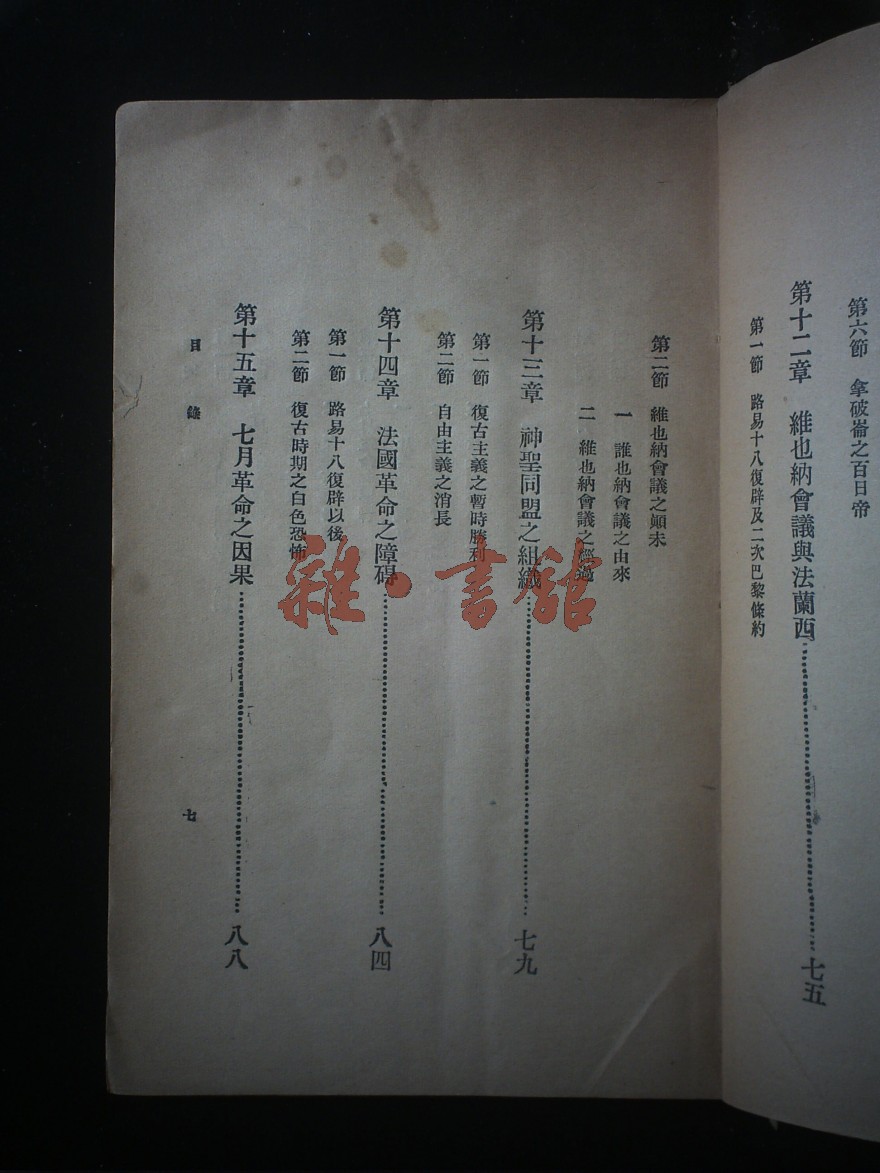 第六節 拿破崙之百日帝
第十二章 維也納會議與法蘭西 七五
第一節 路易十八復辟及二次巴黎條約
第二節 維也納會議之顛末
一 誰也納會議之由來
二 維也納會議之經過
第十三章 神聖同盟之組織 七九
第一節 復古主義之暫時勝利
第二節 自由主義之消長
第十四章 法國革命之障碍 八四
第一節 路易十八復辟以後
第二節 復古時期之白色恐怖
第十五章 七月革命之因果 八八
目錄 七
雜·書館